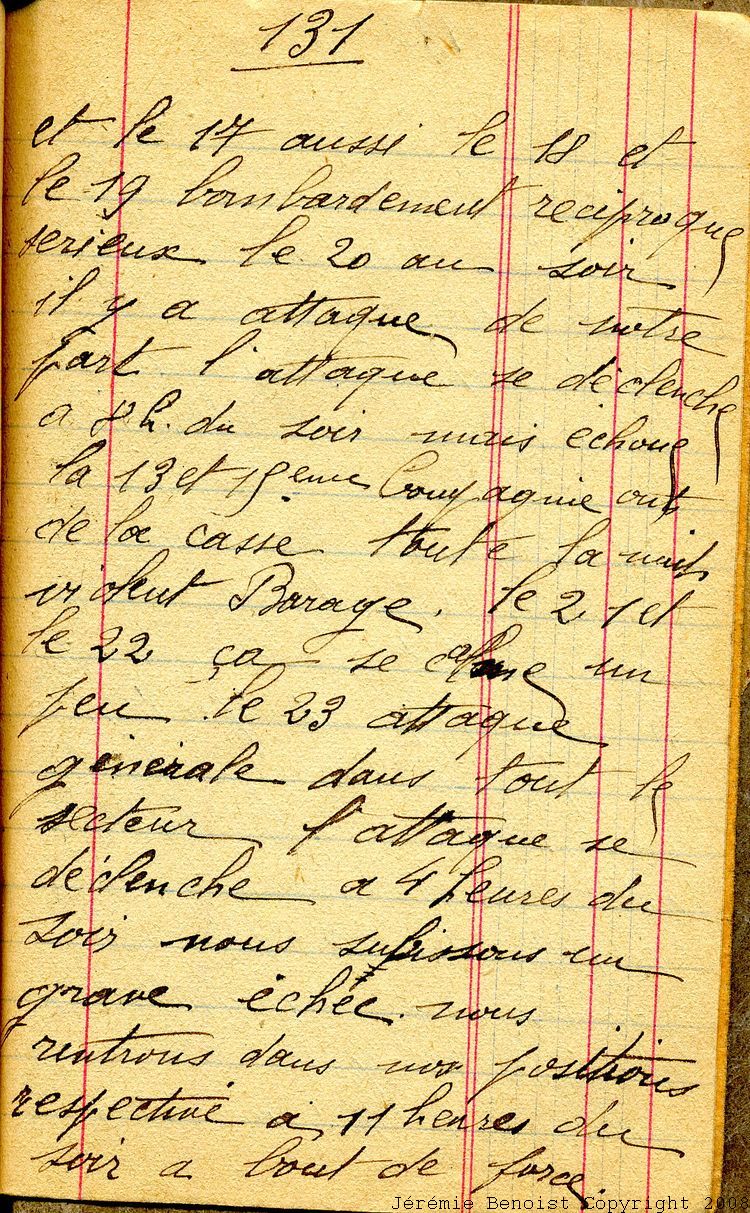 131
et le 17 aussi le 18 et
le 19 bombardement reciproque
serieux le 20 au soir
il y a attaque de notre
part l'attaque se déclenche
a 8h. du soir mais échoue
la 13 et 15eme Compagnie ont
de la casse toute la nuit
violent Barage. le 21 et
le 22 ça se un
peu. le 23 attaque
générale dans tout le
secteur l'attaque se
déclenche a 4 heures du
soir nous subissons un
grave échée. nous
rentrons dans nos positions
respective a 11 heures du
soir a bout de force.
Jérémie Benoist Copyright 200